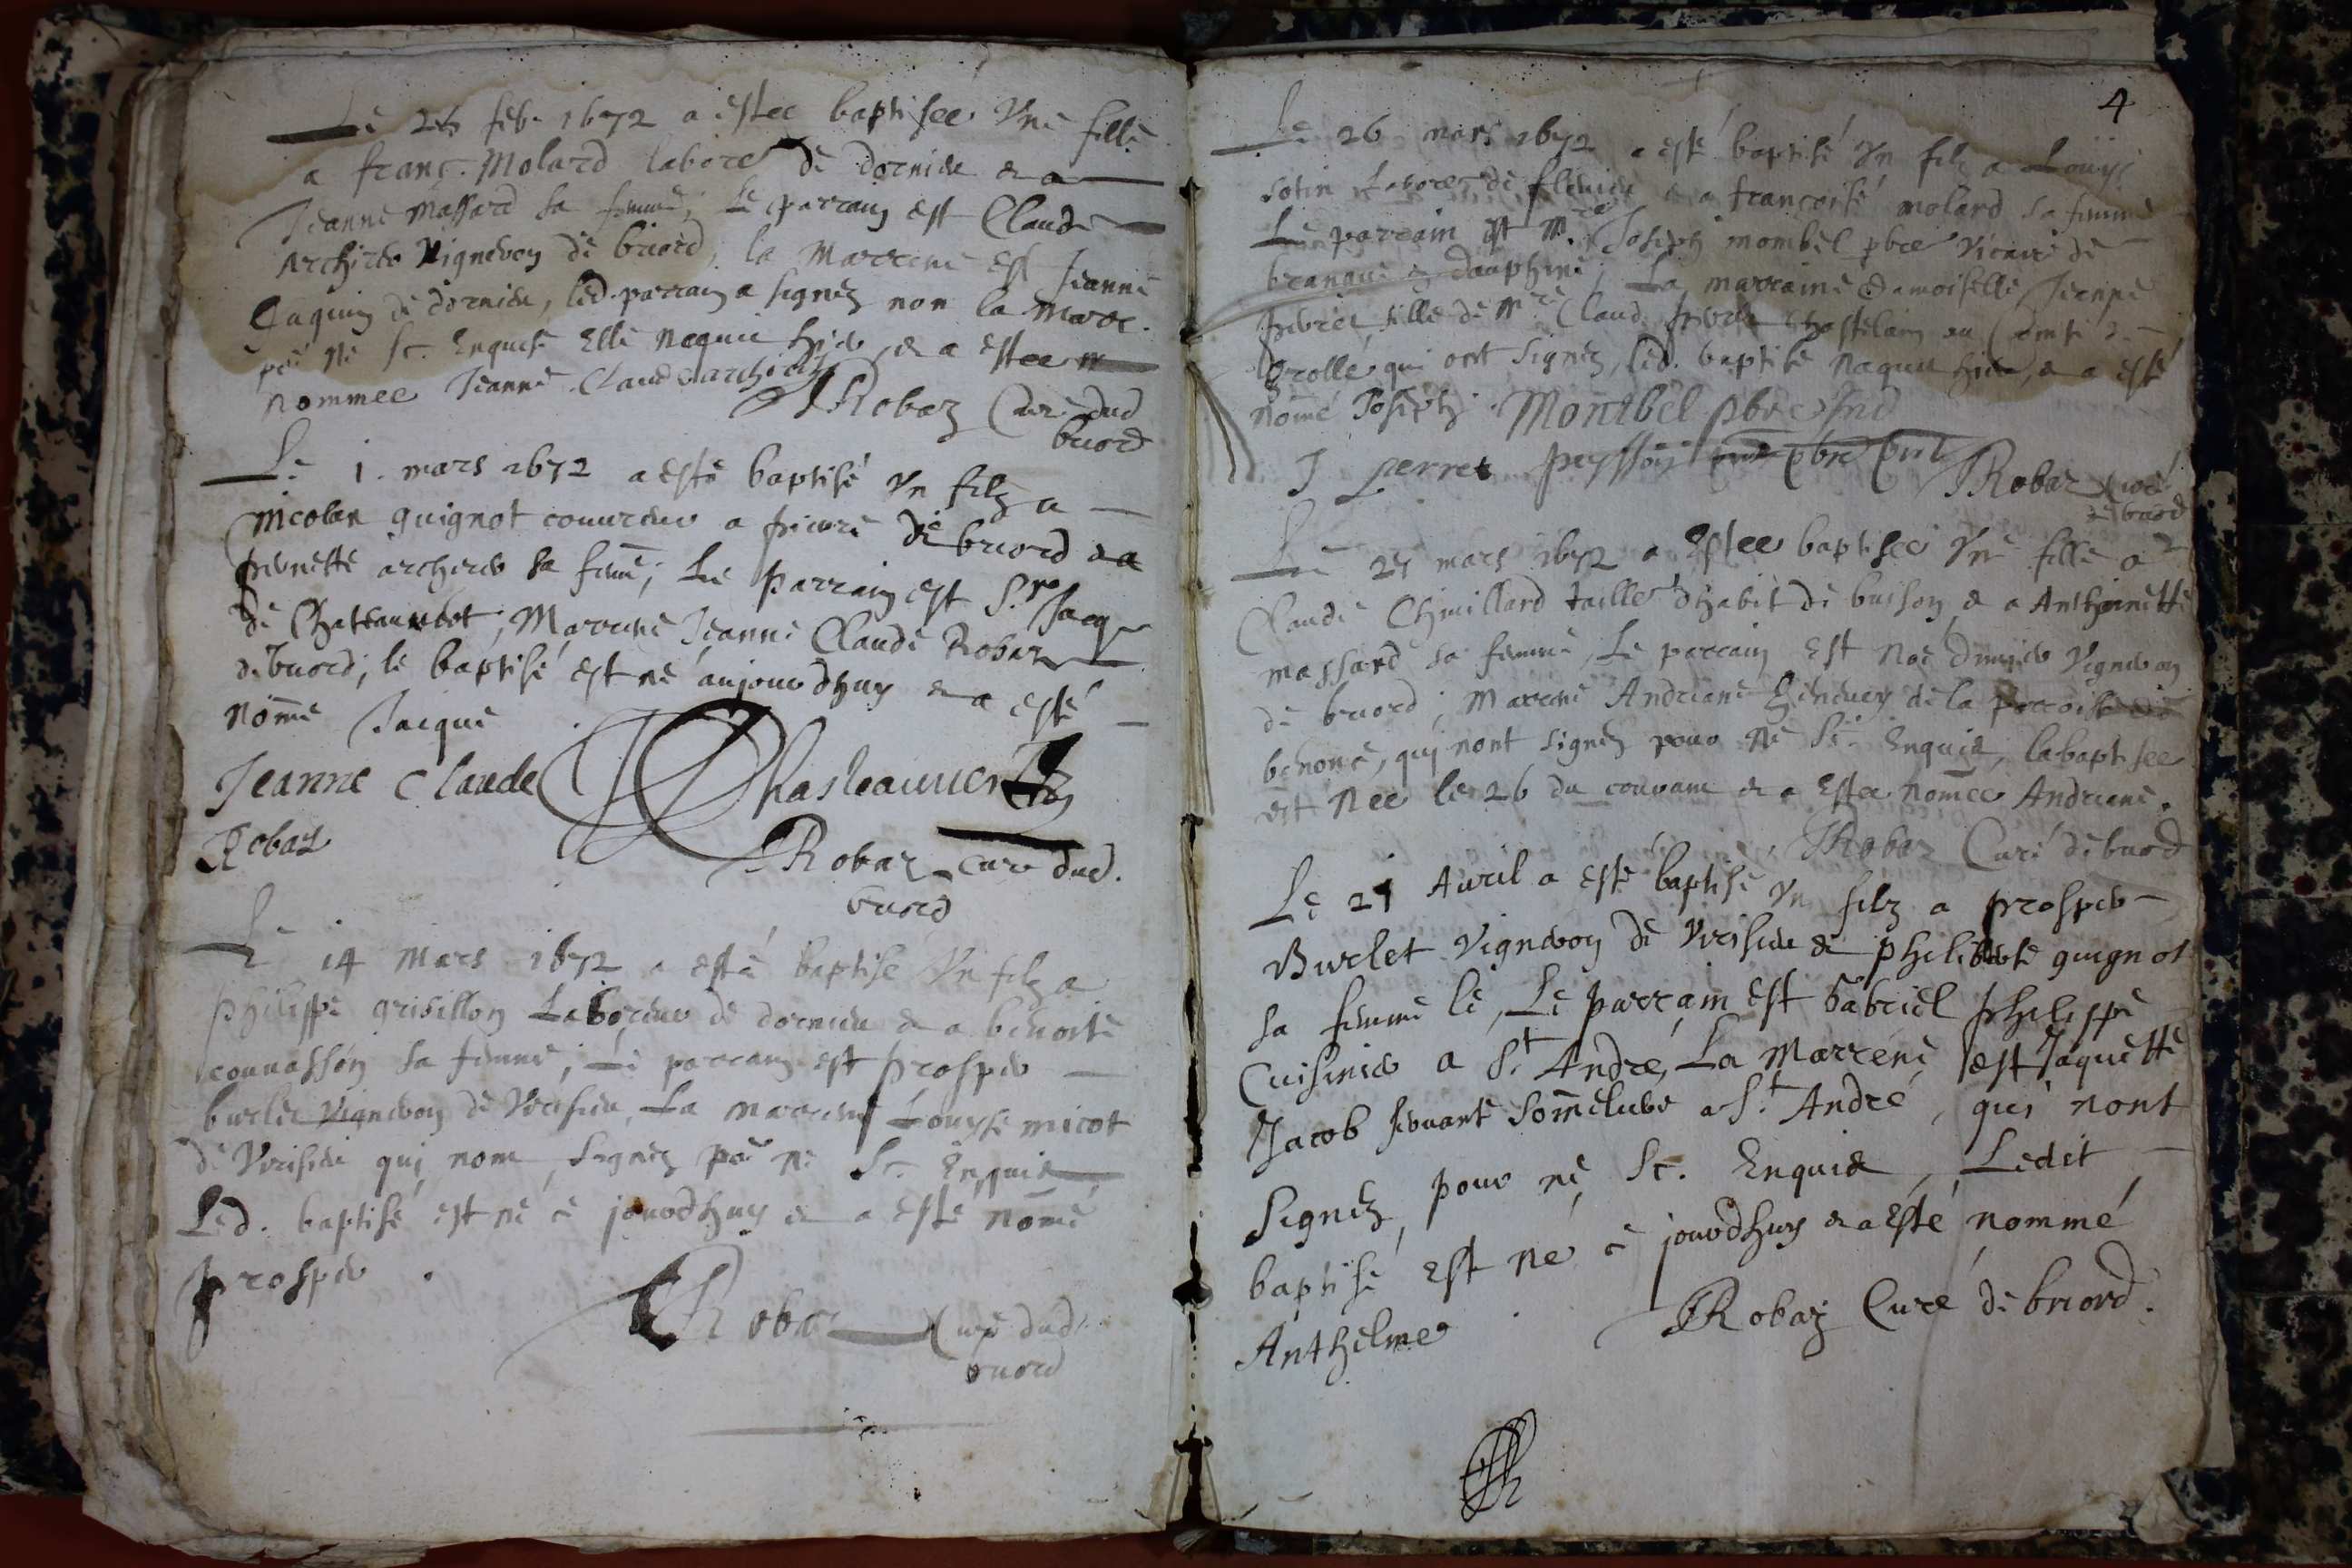 Le 26 feb. 1672 a estee baptisee Vne fille
a franc. Molard labore de dornieu & a
Jeanne Massard sa femme, Le parrain est Claude
Archier Vigneron de briord, la Marrene est Jeanne
de dornieu, led. parrain a signez non la Marr.
po ne sc. Enquise Elle naquit hier, & a estee
nommee Jeanne. Claude archier
Robaz Cure dud
briord
Le 1. mars 1672 a esté baptisé Vn filz a
Nicolas guignot couureur a pierre de briord & a
pernette archere sa feme; Le parrain est Sr. Jacq
de Chateauvert; Marrene Jeanne Claude Robaz
de briord; le baptisé est né aujourdhuy & a esté
nomé Jacque
Jeanne Claude
Robaz
Robaz cure dud.
briord
Le 14 Mars 1672 a esté baptisé Vn filz a
philippe grisillon Laboreur de dornieu & a benoite
sa femme; Le parrain est prosper
burlet Vigneron de Verisieu, La marrene Louyse micot
de Verisieu qui nont signez po ne Sc. Enquis
Led. baptisé est né ce jourdhuy & a esté nomé
prosper.
Robaz Cure dud
briord
4
Le 26 mars 1672 a esté baptisé Vn filz a Louys
sotin Labore de & a francoise molard sa femme
Le parrain est Mre Joseph mombel pbre Vicaire de
brangue en dauphiné, La marraine damoiselle Jeanne
fille de Mre Claude Chastelain au Comté de
Grolle qui ont signez, led. baptisé naquit hier, & a esté
nomé Joseph. Montbel pbre
J perret pbre Robaz Curé
de briord
Le 27 mars 1672 a Estee baptisee Vne fille a
Claude Chivillard tailleur dhabit de buison & a Anthoinette
massard sa femme, Le parrain Est Noe Vigneron
de briord; Marrene Andreane de la parroisse de
benonce, qui nont signez pour ne Sc. Enquis, la baptisee
est Nee le 26 du courant & a Estee nomee Andreane.
Robaz Curé de briord
Le 21 Auril a esté baptisé Vn filz a prosper
Burlet Vigneron de Verisieu & philiberte guignot
sa femme le, Le parrain est Gabriel philippe
Cuisinier a St. André, La Marrene est Jaquette
Jacob seruante a St. André, qui nont
Signez, pour ne Sc. Enquis, Ledit
baptisé Est né ce jourdhuy & a Esté nommé
Anthelme. Robaz Curé de briord.